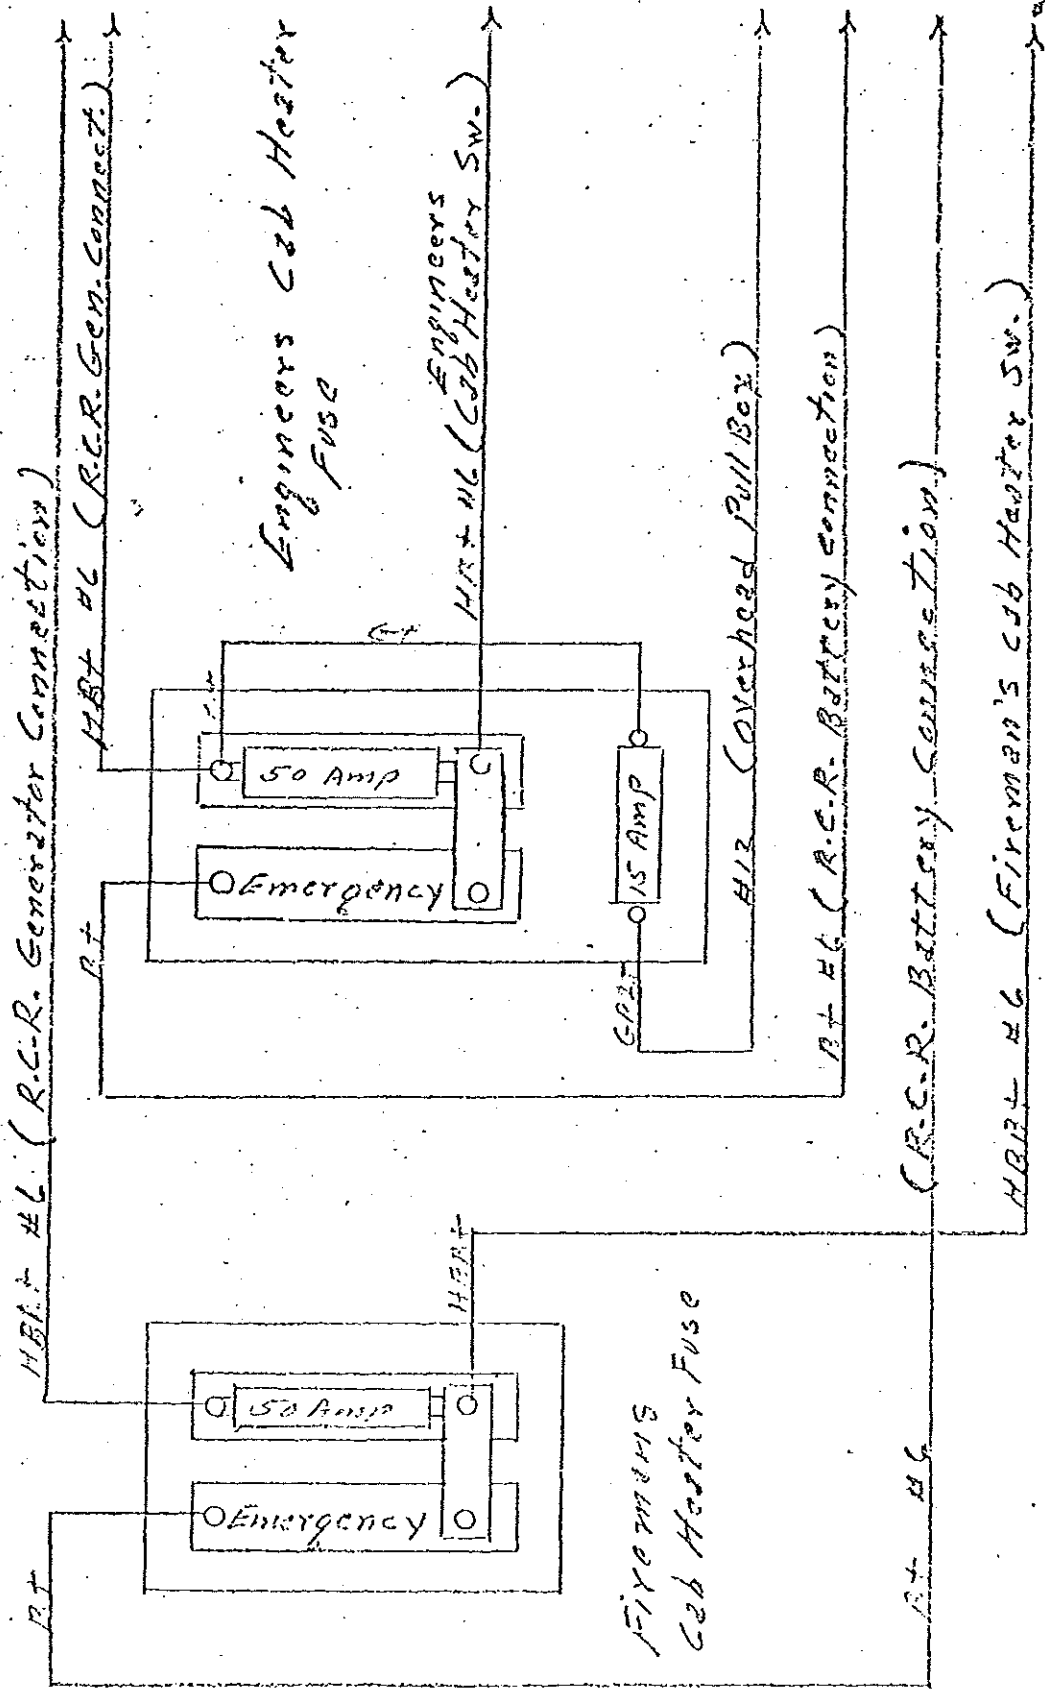 (R.C.R. Generator Connection)
#6 (R.C.R. Gen. Connect.)
Engineers Cab Heater
Fuse
Engineers
#6 (Cab Heater Sw.)
50 Amp
Emergency
15 Amp
#12 (Overhead Pull Box)
B+
B+ #6 (R.C.R. Battery connection)
(R.C.R. Battery Connection)
B+ #6
#6 (Fireman's cab Heater Sw.)
50 Amp
Emergency
B+
Firemans
Cab Heater Fuse